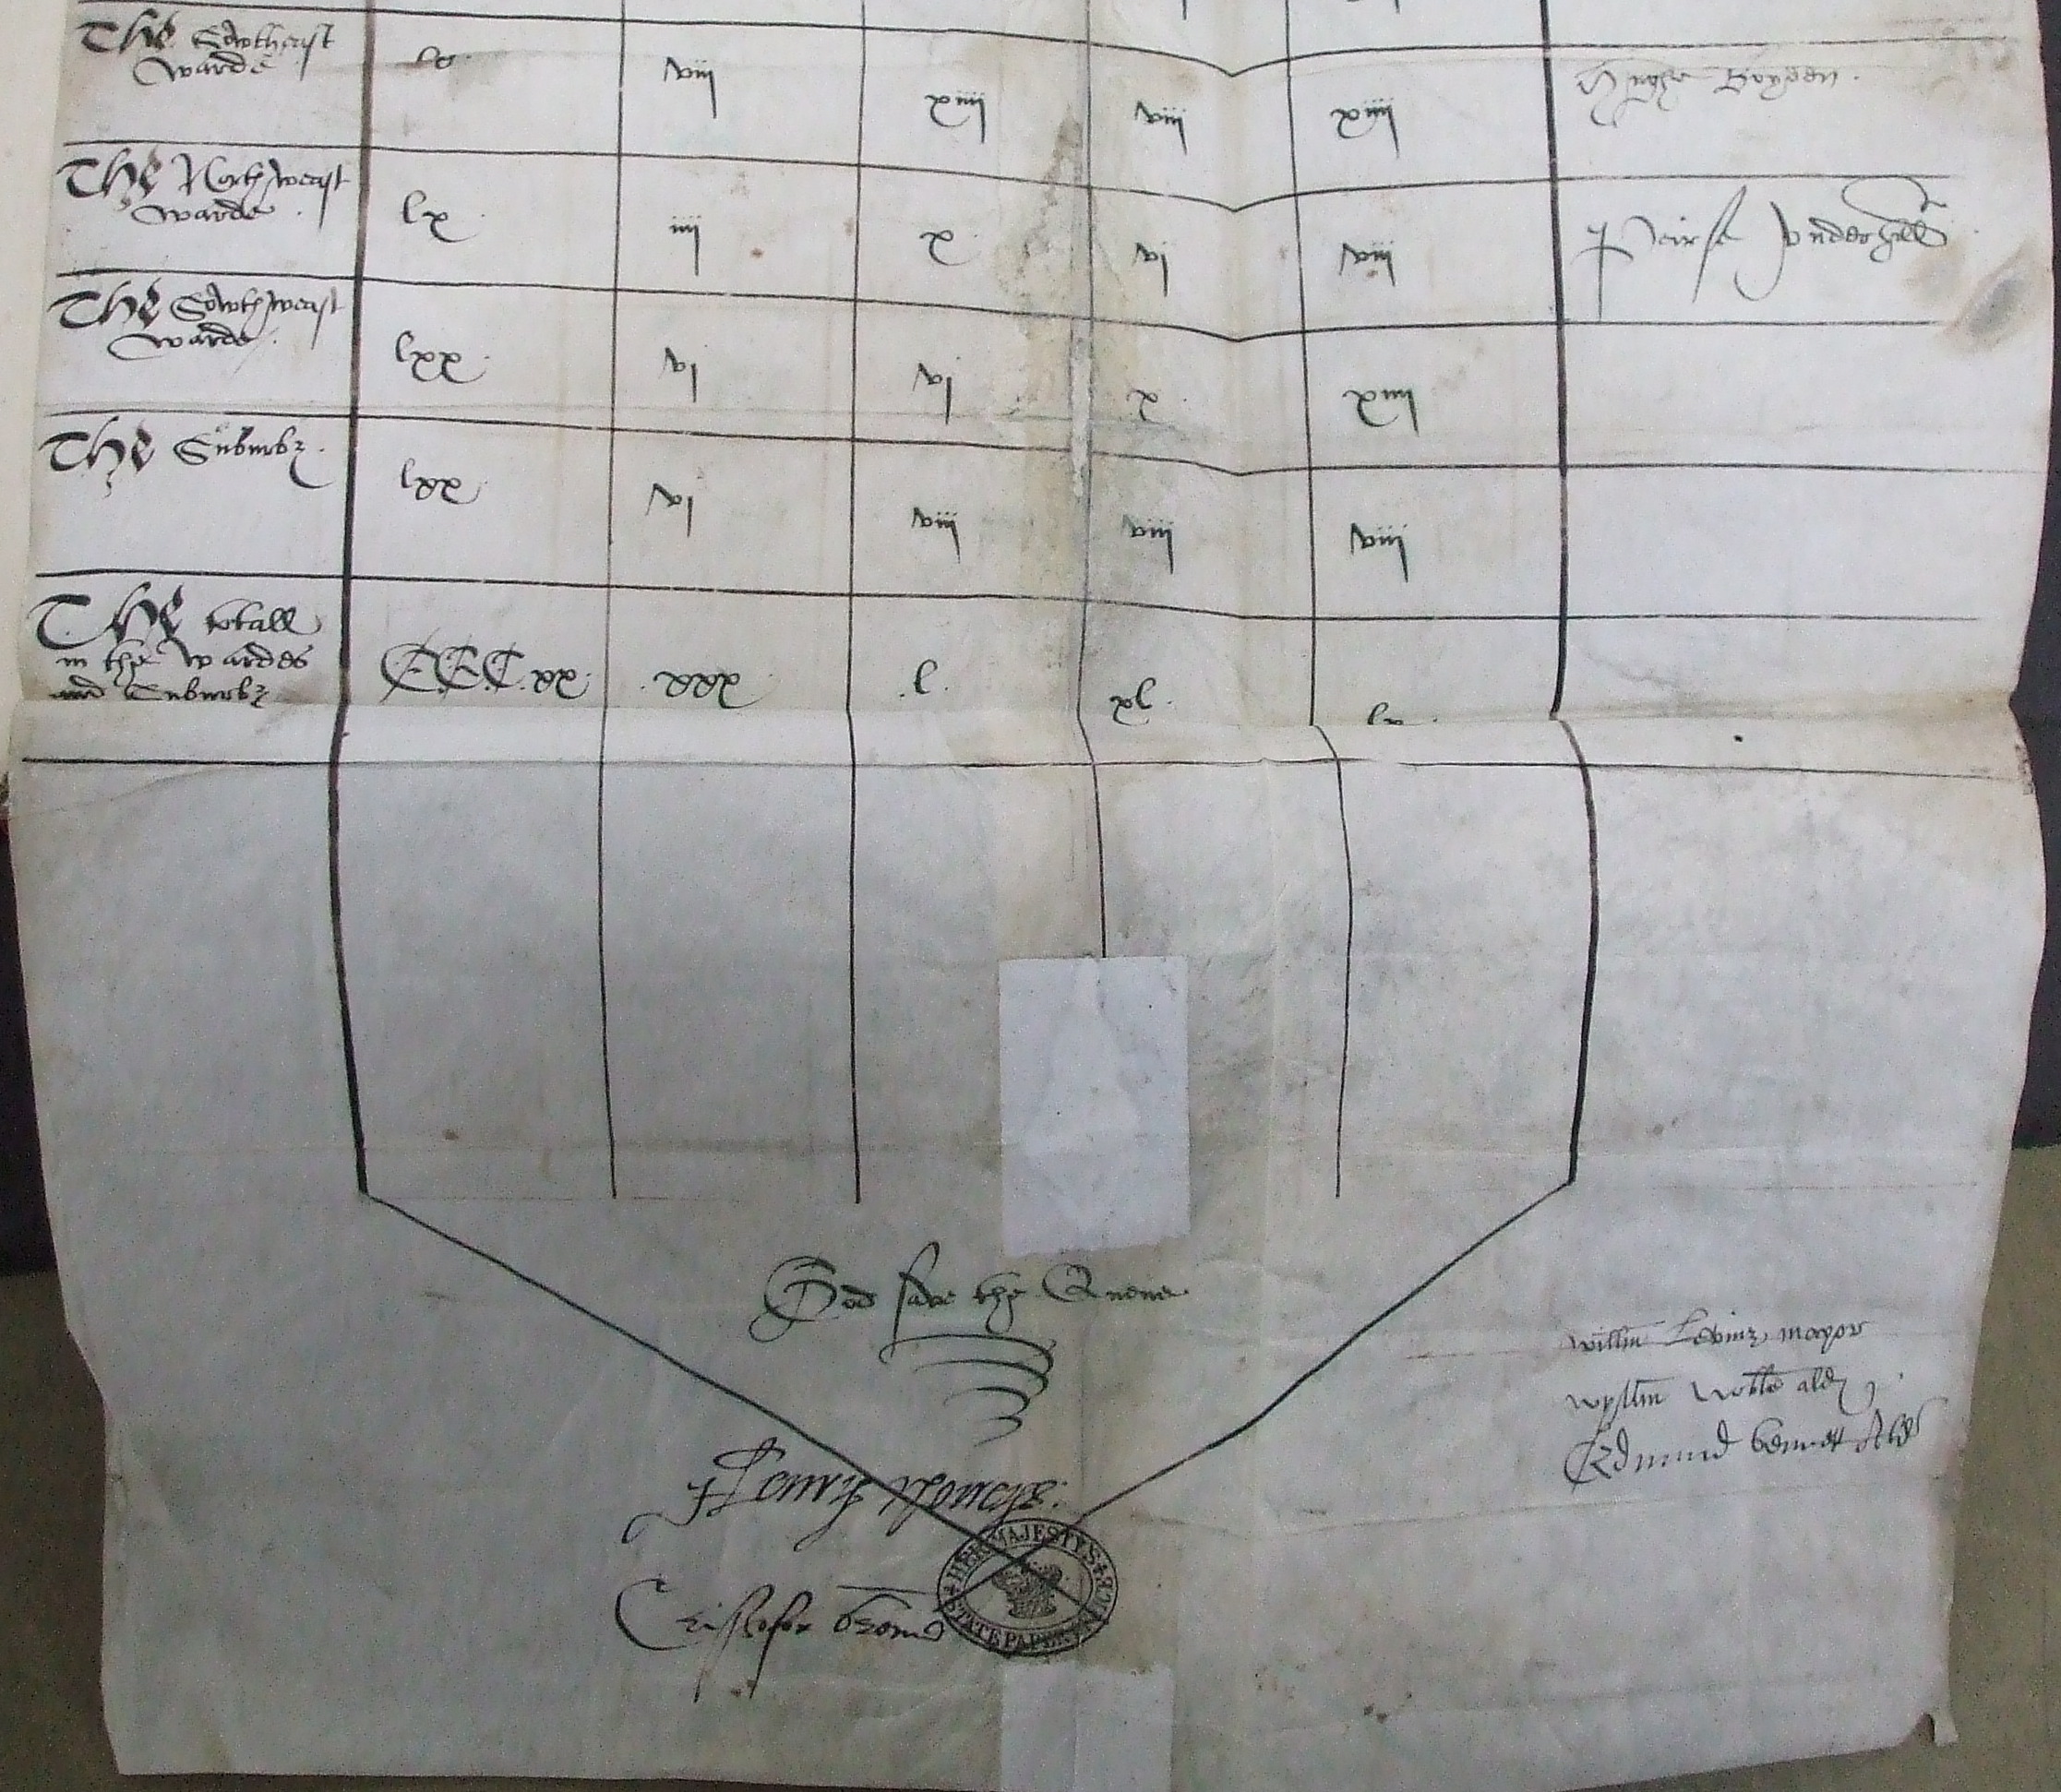 The Sowtheast
warde
lx. vij xiiij viij xiiij Hughe
The Northweast
warde.
lx. iiij x. vj viij Peirse Vnderhill
The Sowthweast
warde.
lxx. vj vj x. xiiij
The Suburbz.
lxx. vj viij viij viij
The totall
in the Wardes
and Suburbz
CCC.xx. .xxx. .l. .xl. lx.
God save the Quene
willm Levinz, mayor
wyllm ald
Edmund bennett Ald
Henry Norreys:
Cristofer brome
HER MAJESTYS
STATE PAPER OFFICE